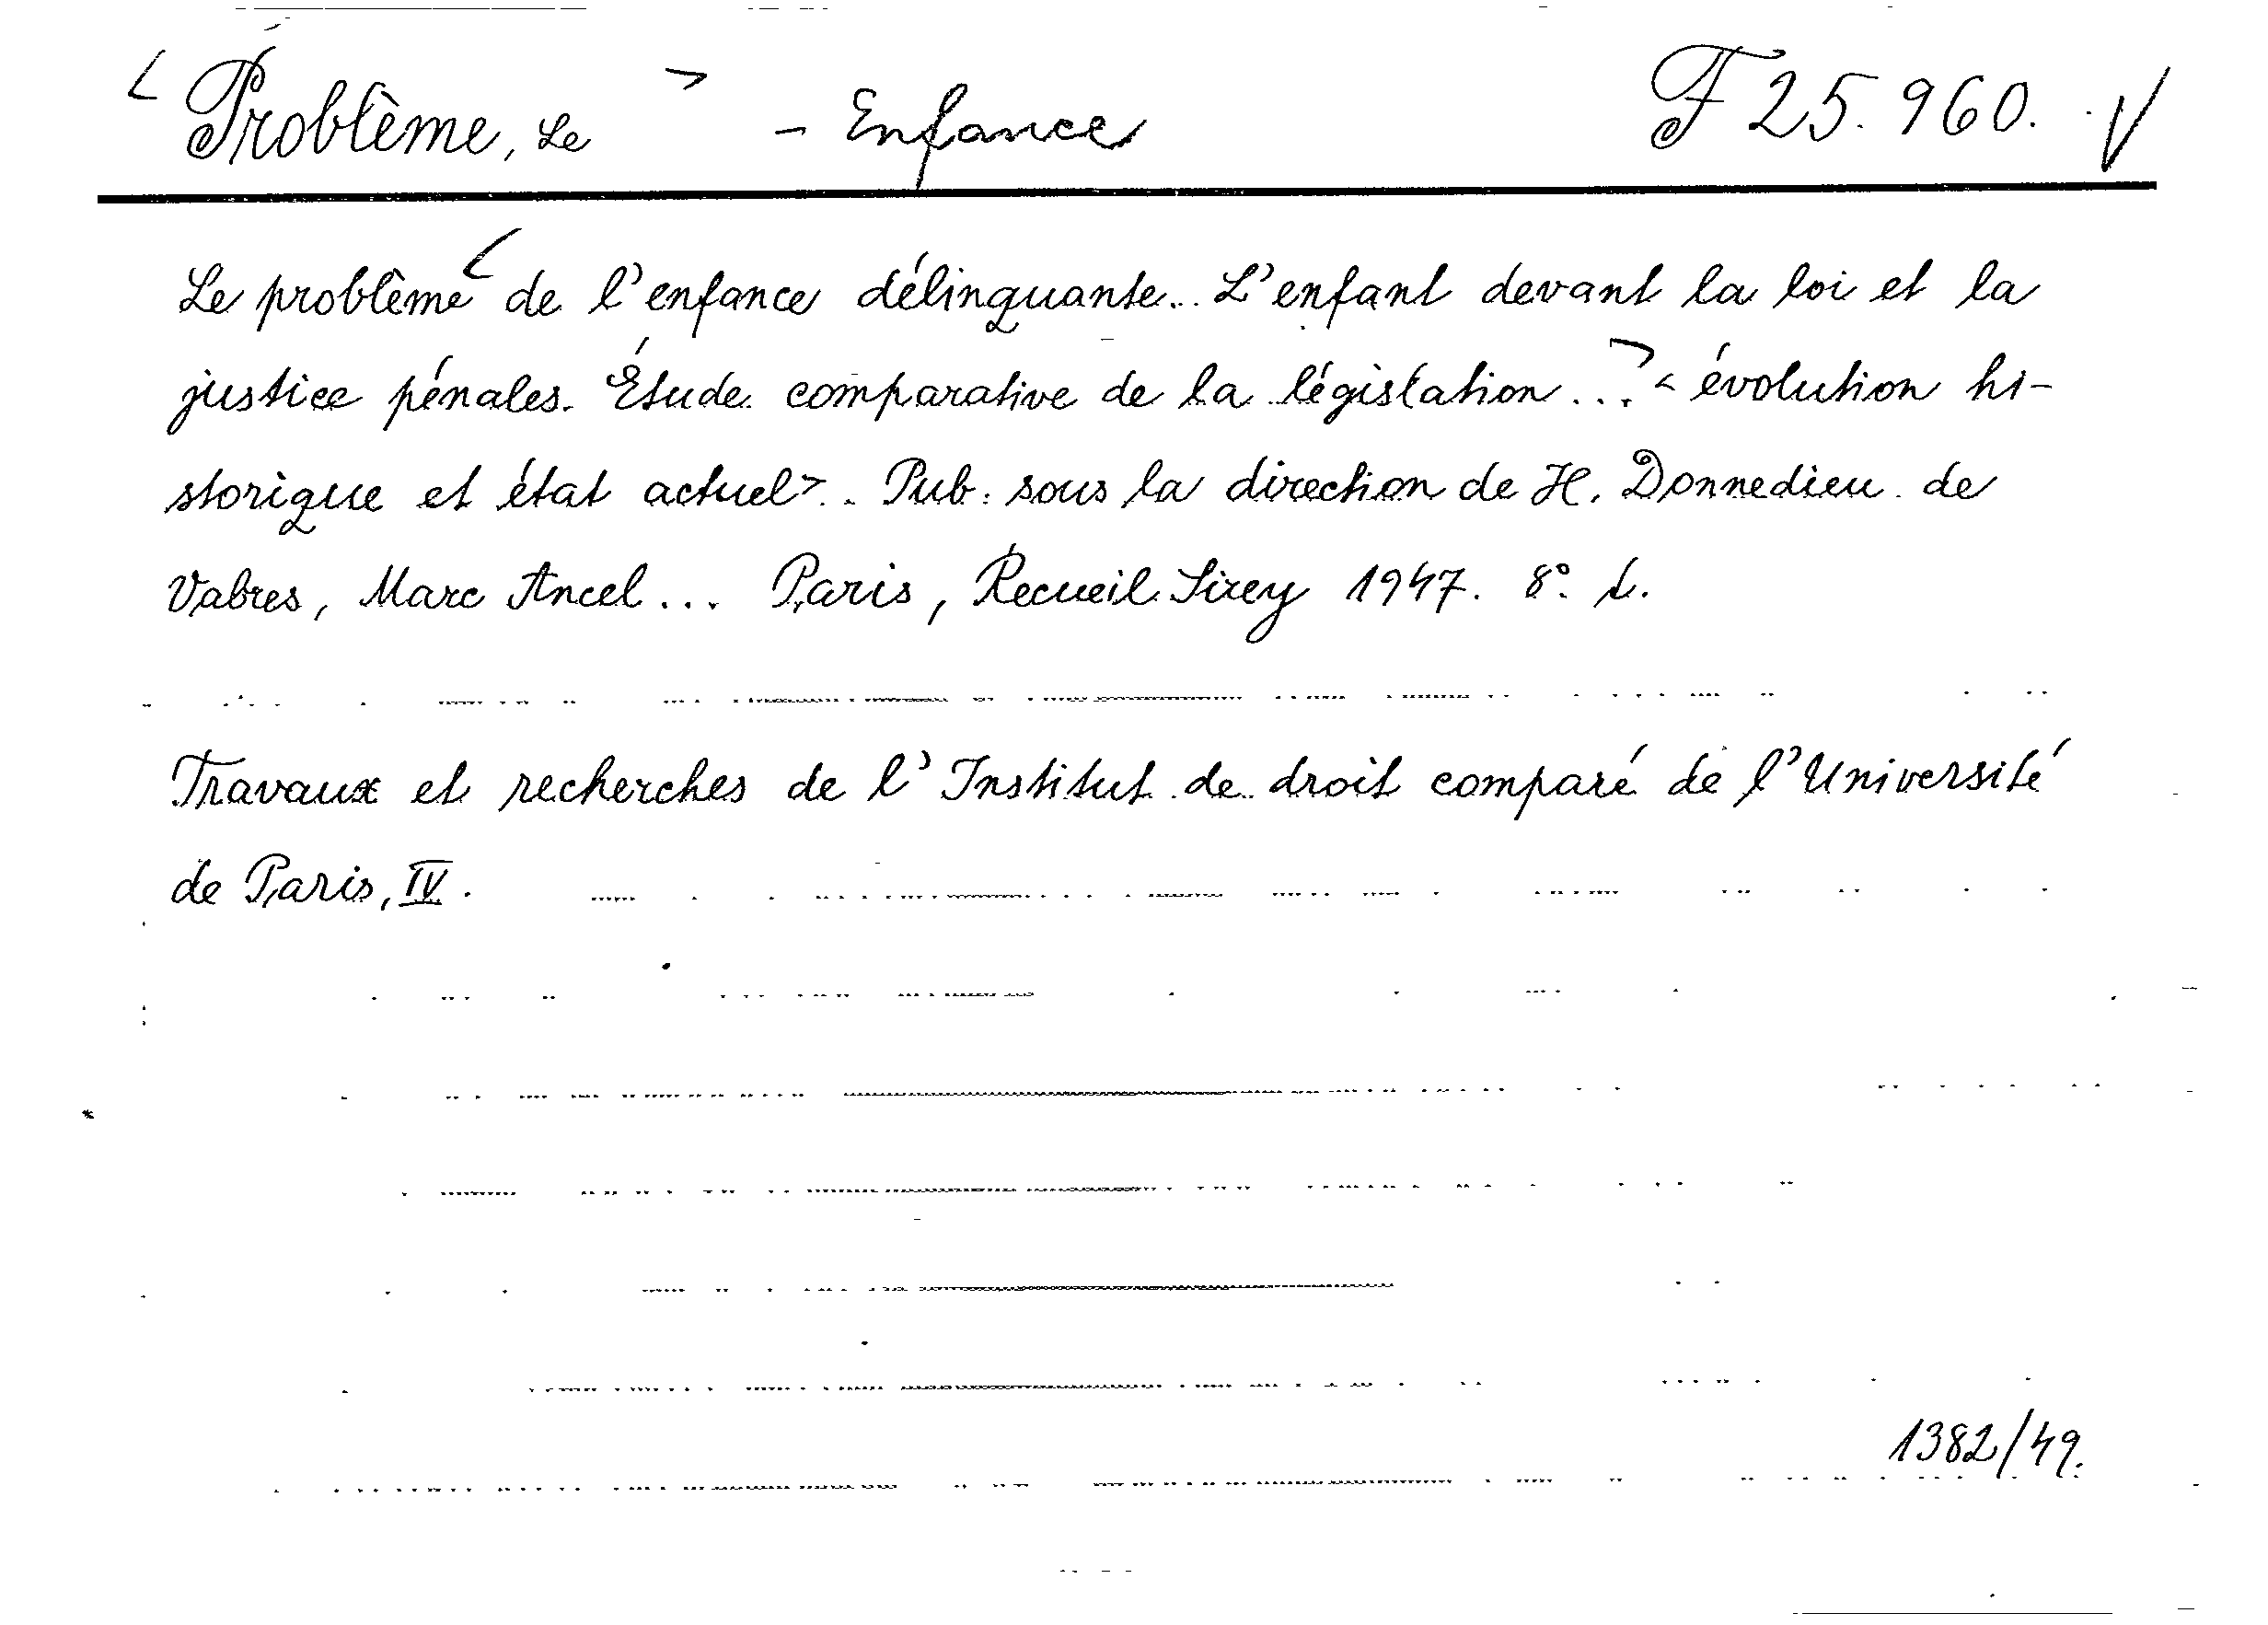 < Problème, Le > - Enfance F 25.960. V
Le problème < de l'enfance délinquante.. L'enfant devant la loi et la
justice pénales. Étude comparative de la législation...> < évolution hi-
storique et état actuel >.. Pub. sous la direction de H. Donnedieu de
Vabres, Marc Ancel... Paris, Recueil Sirey 1947. 8°. L.
Travaux et recherches de l'Institut de droit comparé de l'Université
de Paris, IV.
1382/49.